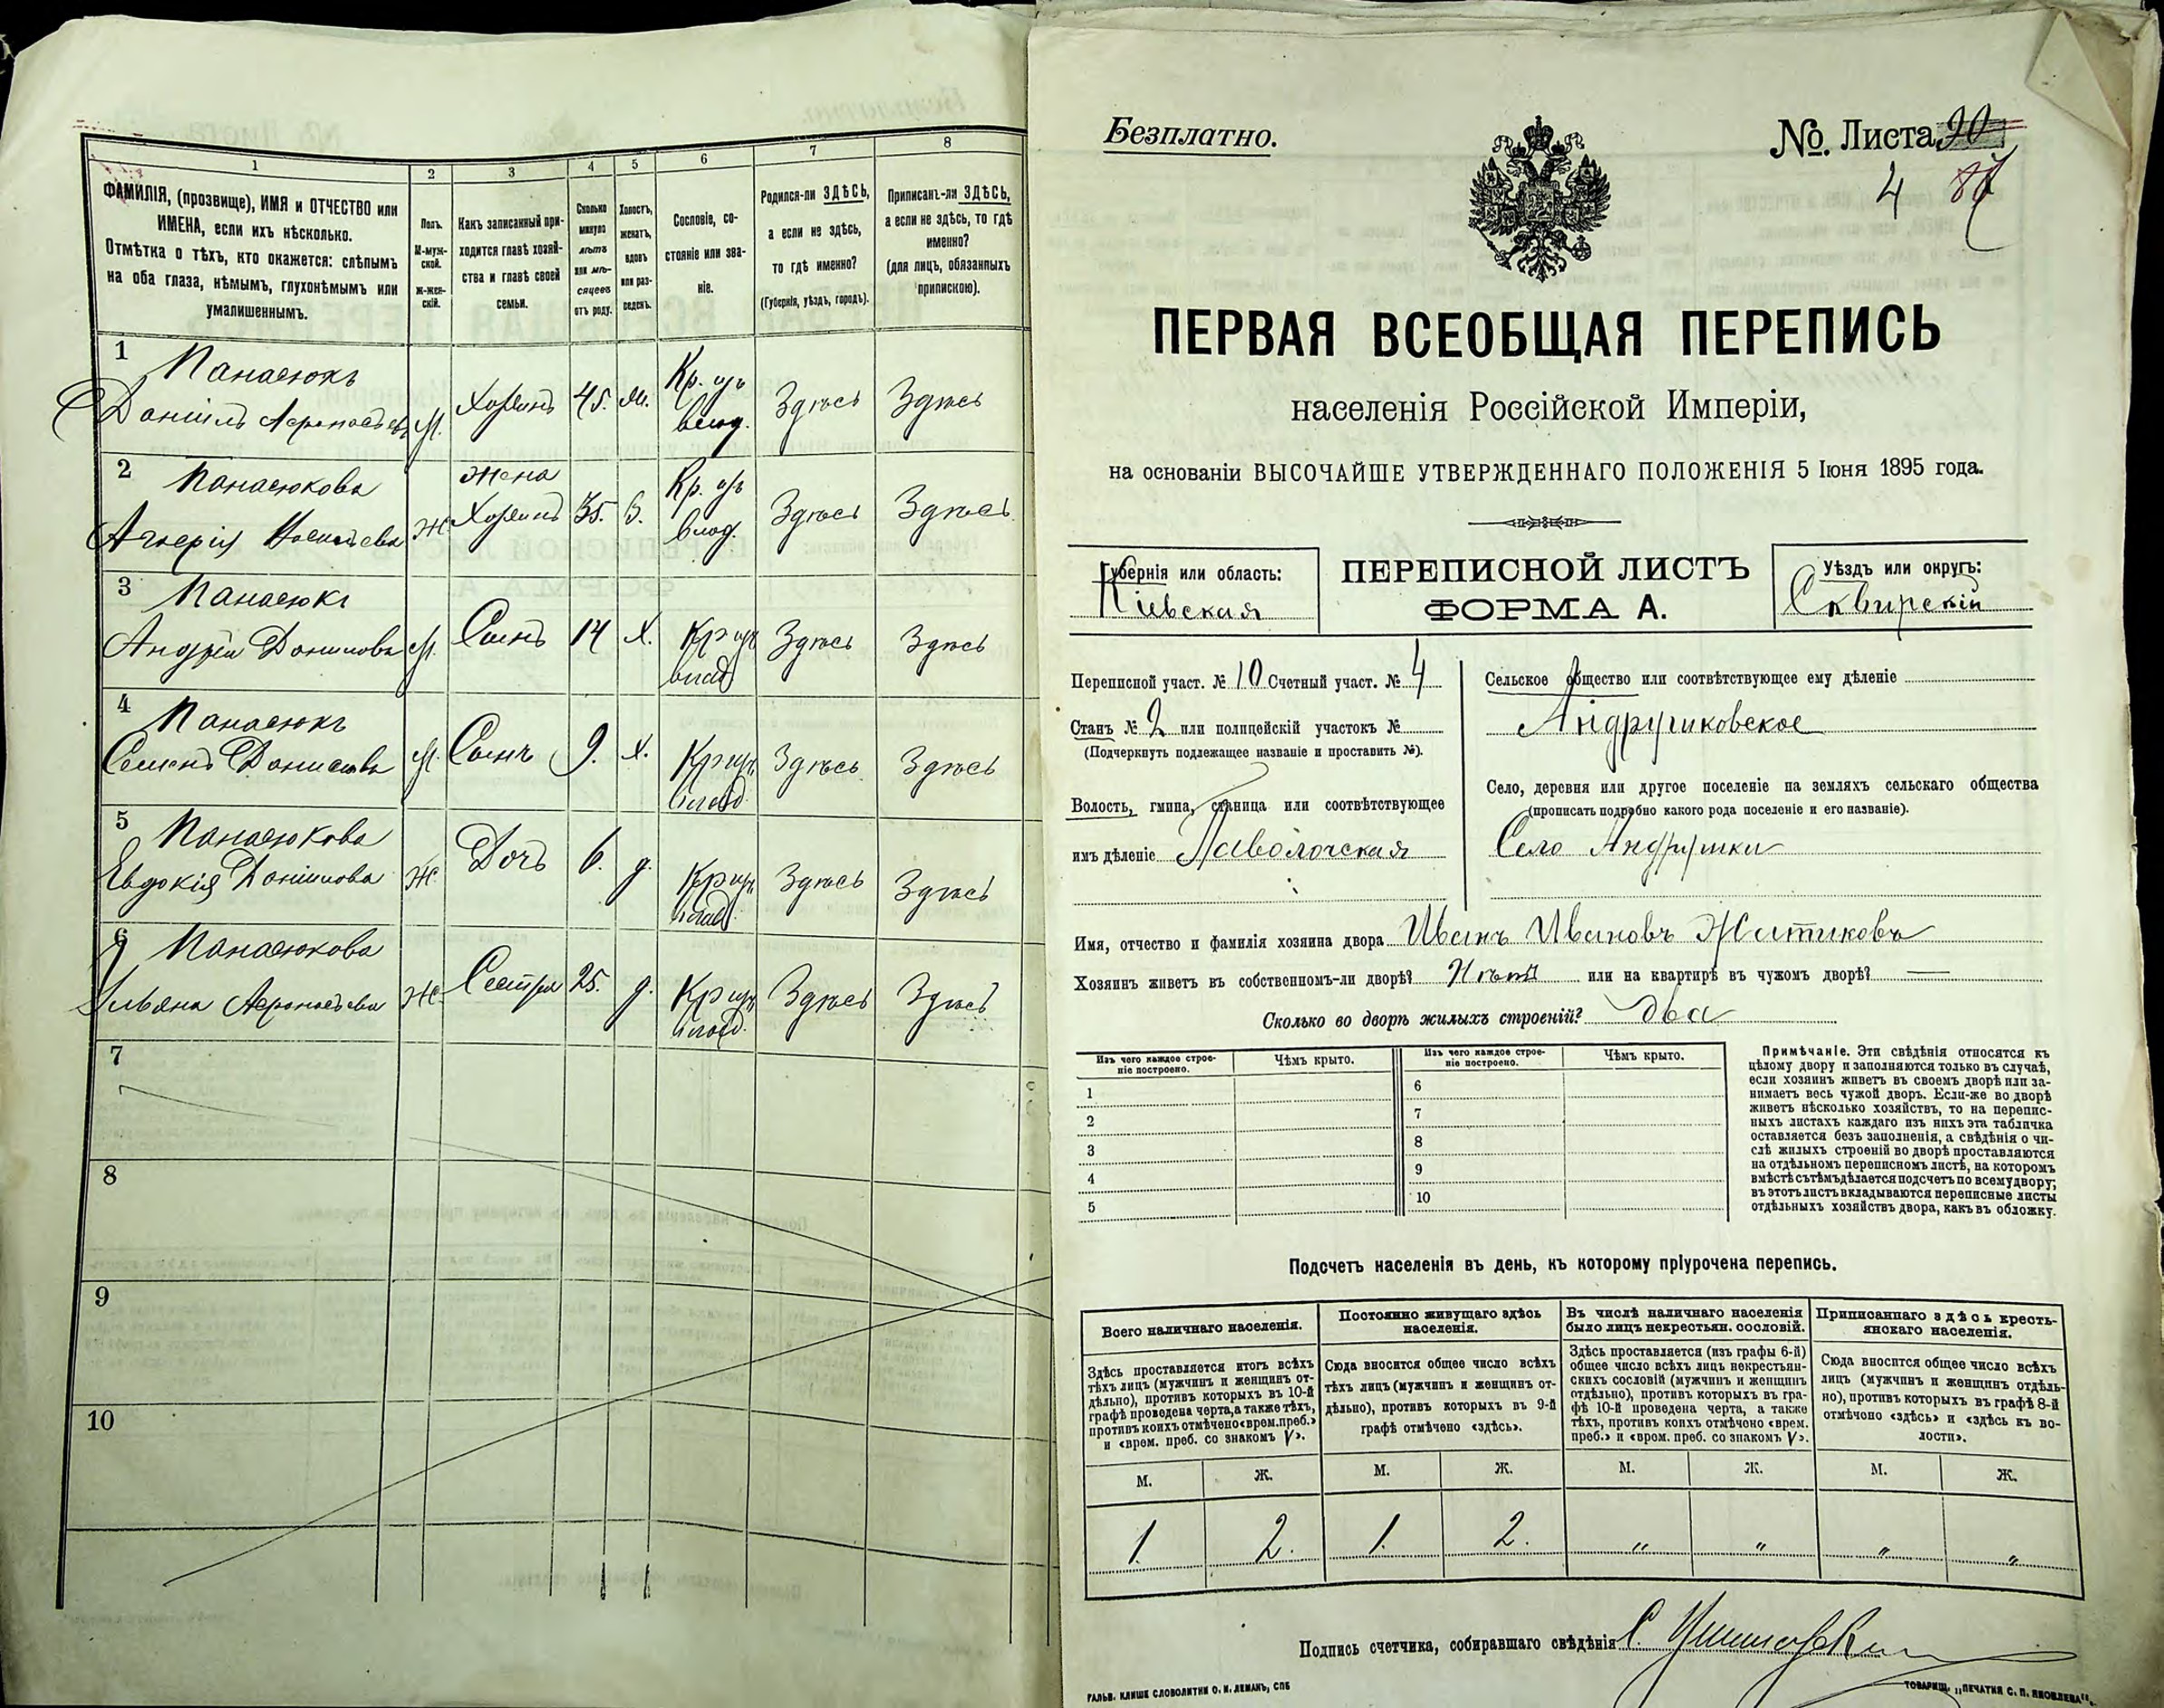 1
2
3
4
5
6
7
8
ФАМИЛІЯ, (прозвище), ИМЯ и ОТЧЕСТВО или
ИМЕНА, если ихъ нѣсколько.
Отмѣтка о тѣхъ, кто окажется: слѣпымъ
на оба глаза, нѣмымъ, глухонѣмымъ или
умалишеннымъ.
Полъ.
М-муж-
ской.
Ж-жен-
скій.
Какъ записанный при-
ходится главѣ хозяй-
ства и главѣ своей
семьи.
Сколько
минуло
лѣтъ
или мѣ-
сяцевъ
отъ роду.
Холостъ,
женатъ,
вдовъ
или раз-
веденъ.
Сословіе, со-
стояніе или зва-
ніе.
Родился-ли ЗДѢСЬ,
а если не здѣсь,
то гдѣ именно?
(Губернія, уѣздъ, городъ).
Приписанъ-ли ЗДѢСЬ,
а если не здѣсь, то гдѣ
именно?
(для лицъ, обязанныхъ
припискою).
1
Панасюкъ
Даніилъ Афанасьевъ М. Хозяинъ 45. Кр. изъ Здѣсь Здѣсь
влад.
2
Панасюкова Жена
Ж Хозяина 35. З. Кр. изъ Здѣсь Здѣсь
влад.
3
Панасюкъ
Андрей Данилова М. Сынъ 14 Х. Кр изъ Здѣсь Здѣсь
влад
4
Панасюкъ
Семенъ Данилова М. Сынъ 9. Х. Кр изъ Здѣсь Здѣсь
влад.
5
Панасюкова
Евдокія Данилова Ж. Дочь 6. д. Кр изъ Здѣсь Здѣсь
влад.
6
Панасюкова
Ульяна Афанасьева Ж. Сестра 25. д. Кр изъ Здѣсь Здѣсь
влад.
7
8
9
10
Безплатно.
№. Листа 20
4
ПЕРВАЯ ВСЕОБЩАЯ ПЕРЕПИСЬ
населенія Россійской Имперіи,
на основаніи ВЫСОЧАЙШЕ УТВЕРЖДЕННАГО ПОЛОЖЕНІЯ 5 Іюня 1895 года.
Губернія или область:
Кіевская
ПЕРЕПИСНОЙ ЛИСТЪ
ФОРМА А.
Уѣздъ или округъ:
Сквирскій
Переписной участ. № 10 Счетный участ. № 4
Станъ № 2 или полицейскій участокъ №
(Подчеркнуть подлежащее названіе и проставить №).
Волость, гмина, станица или соотвѣтствующее
имъ дѣленіе Паволочская
Сельское общество или соотвѣтствующее ему дѣленіе
Андрушковское
Село, деревня или другое поселеніе на земляхъ сельскаго общества
(прописать подробно какого рода поселеніе и его названіе).
Село Андрушки
Имя, отчество и фамилія хозяина двора Иванъ Ивановъ Житниковъ
Хозяинъ живетъ въ собственномъ-ли дворѣ? Нѣтъ или на квартирѣ въ чужомъ дворѣ? —
Сколько во дворѣ жилыхъ строеній? два
Изъ чего каждое строе-
ніе построено.
Чѣмъ крыто.
Изъ чего каждое строе-
ніе построено.
Чѣмъ крыто.
1
2
3
4
5
6
7
8
9
10
Примѣчаніе. Эти свѣдѣнія относятся къ
цѣлому двору и заполняются только въ случаѣ,
если хозяинъ живетъ въ своемъ дворѣ или за-
нимаетъ весь чужой дворъ. Если-же во дворѣ
живетъ нѣсколько хозяйствъ, то на перепис-
ныхъ листахъ каждаго изъ нихъ эта табличка
оставляется безъ заполненія, а свѣдѣнія о чи-
слѣ жилыхъ строеній во дворѣ проставляются
на отдѣльномъ переписномъ листѣ, на которомъ
вмѣстѣ съ тѣмъ дѣлается подсчетъ по всему двору;
въ этотъ листъ вкладываются переписные листы
отдѣльныхъ хозяйствъ двора, какъ въ обложку.
Подсчетъ населенія въ день, къ которому пріурочена перепись.
Всего наличнаго населенія.
Здѣсь проставляется итогъ всѣхъ
тѣхъ лицъ (мужчинъ и женщинъ от-
дѣльно), противъ которыхъ въ 10-й
графѣ проведена черта, а также тѣхъ,
противъ коихъ отмѣчено «врем. преб.»
и «врем. преб. со знакомъ V».
Постоянно живущаго здѣсь
населенія.
Сюда вносится общее число всѣхъ
тѣхъ лицъ (мужчинъ и женщинъ от-
дѣльно), противъ которыхъ въ 9-й
графѣ отмѣчено «здѣсь».
Въ числѣ наличнаго населенія
было лицъ некрестьян. сословій.
Здѣсь проставляется (изъ графы 6-й)
общее число всѣхъ лицъ некрестьян-
скихъ сословій (мужчинъ и женщинъ
отдѣльно), противъ которыхъ въ гра-
фѣ 10-й проведена черта, а также
тѣхъ, противъ коихъ отмѣчено «врем.
преб.» и «врем. преб. со знакомъ V».
Приписаннаго здѣсь кресть-
янскаго населенія.
Сюда вносится общее число всѣхъ
лицъ (мужчинъ и женщинъ отдѣль-
но), противъ которыхъ въ графѣ 8-й
отмѣчено «здѣсь» и «здѣсь къ во-
лости».
М. Ж. М. Ж. М. Ж. М. Ж.
1. 2. 1. 2. " " " "
Подпись счетчика, собиравшаго свѣдѣнія С.
ГАЛЬВ. КЛИШЕ СЛОВОЛИТНИ О. И. ЛЕМАНЪ, СПБ
ТОВАРИЩ. „ПЕЧАТНЯ С. П. ЯКОВЛЕВА".